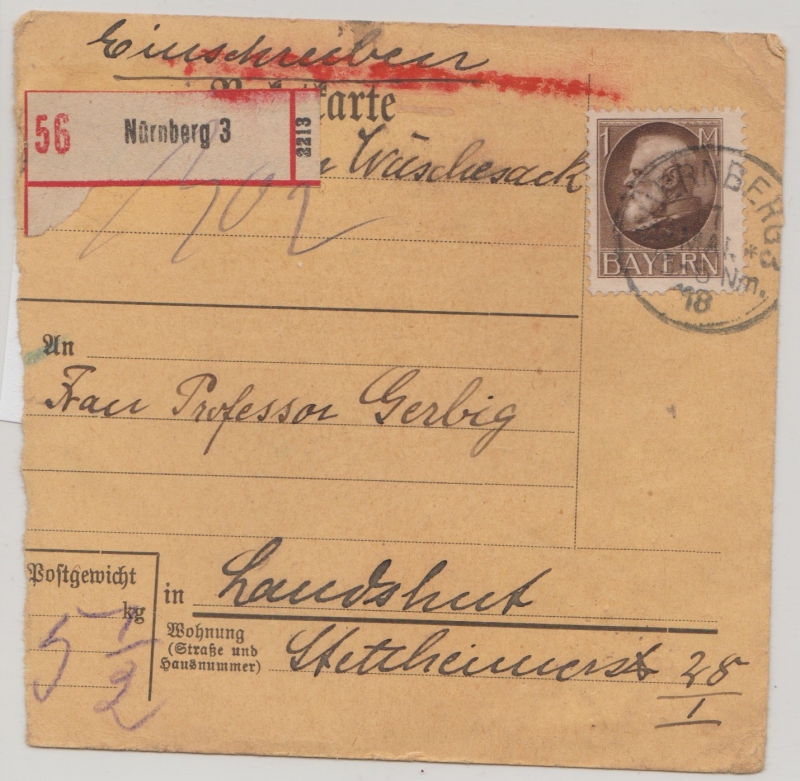 Einschreiben
karte
56 Nürnberg 3 2213
Wäschesack
1 M
BAYERN
NUERNBERG 3
MAI. *
Nm.
18
An
Frau Professor Gerbig
Postgewicht
kg
5 1/2
in Landshut
Wohnung
(Straße und
Hausnummer)
Stettheimerst 28
I